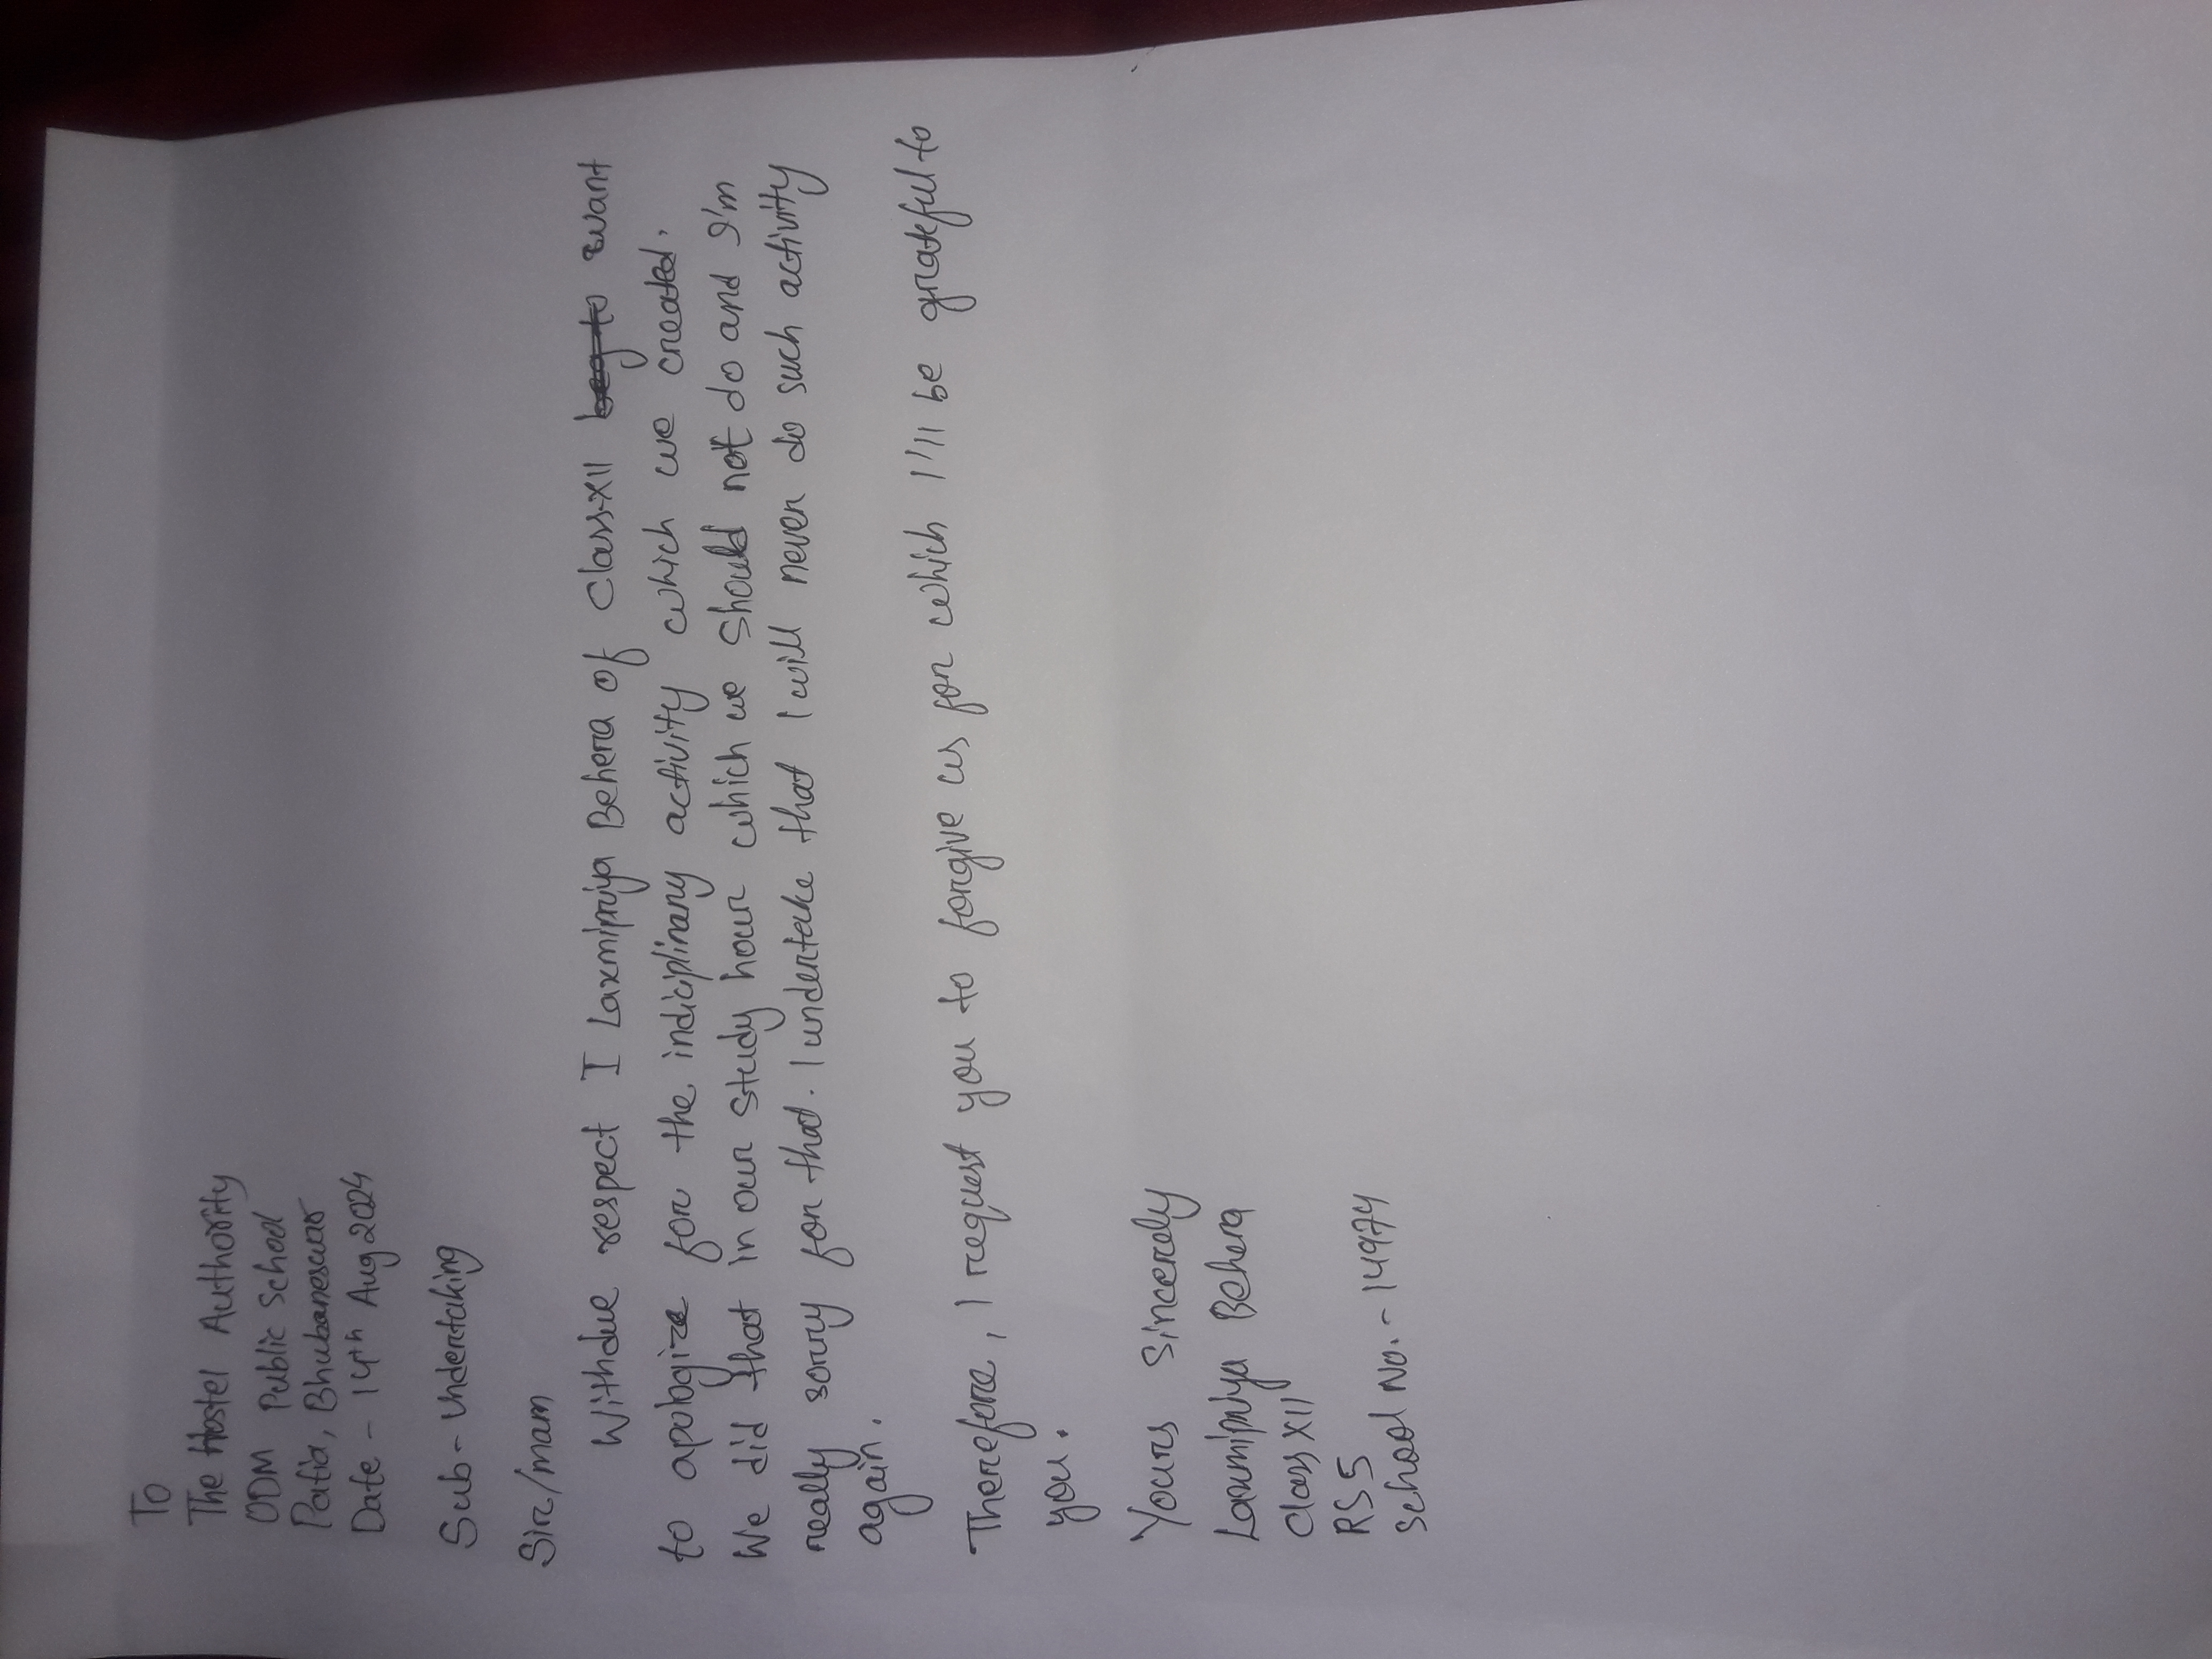 To
The Hostel Authority
ODM Public School
Patia, Bhubaneswar
Date - 14th Aug 2024
Sub - Undertaking
Sir/mam
Withdue respect I Laxmipriya Behera of Class-XII beg to want
to apologize for the indiciplinary activity which we created.
We did that in our study hour which we should not do and I'm
really sorry for that. I undertake that I will never do such activity
again.
Therefore, I request you to forgive us for which I'll be grateful to
you.
Yours Sincerely
Laxmipriya Behera
Class XII
RS5
School No. - 14974